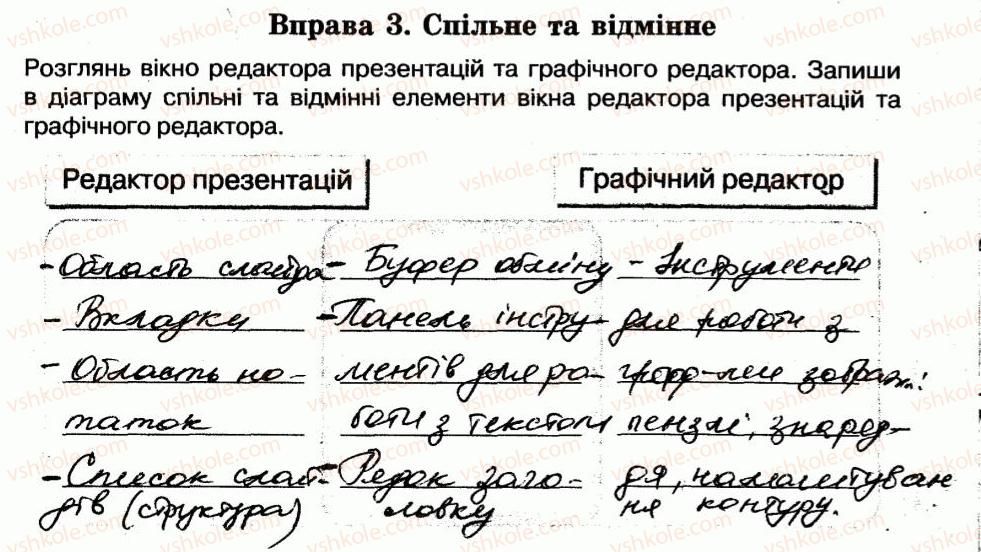 Вправа 3. Спільне та відмінне
Розглянь вікно редактора презентацій та графічного редактора. Запиши
в діаграму спільні та відмінні елементи вікна редактора презентацій та
графічного редактора.
Редактор презентацій
Графічний редактор
- Область слайда
- Вкладки
- Область но-
таток
- Список слай-
дів (структура)
- Буфер обміну
- Панель інстру-
ментів для ро-
боти з текстом
- Рядок заго-
ловку
- Інструменти
для роботи з
пензлі, знаряд-
дя, налаштуван
ня контуру.